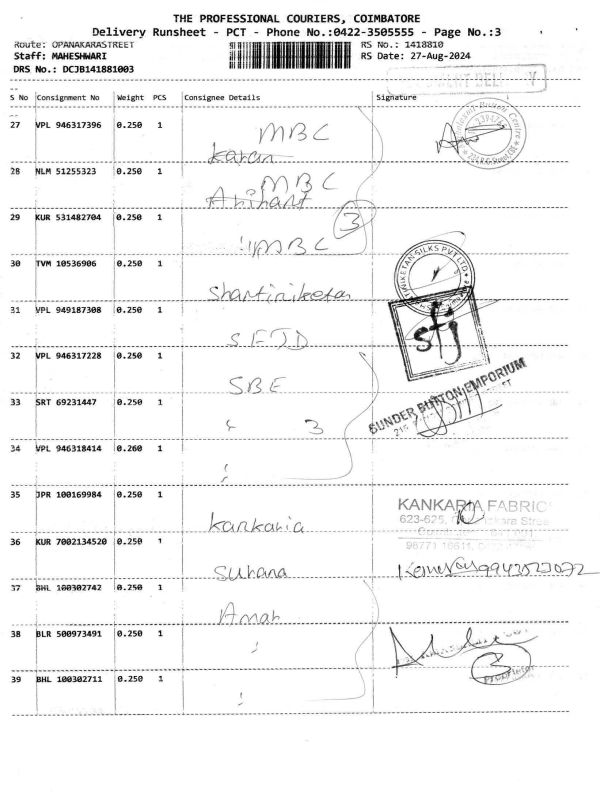 THE PROFESSIONAL COURIERS, COIMBATORE
Delivery Runsheet - PCT - Phone No.:0422-3505555 - Page No.:3
Route: OPANAKARASTREET RS No.: 1418810
Staff: MAHESHWARI RS Date: 27-Aug-2024
DRS No.: DCJB141881003
S No Consignment No Weight PCS Consignee Details Signature
27 VPL 946317396 0.250 1 MBC
Karan
28 NLM 51255323 0.250 1 MBC
Arihant
29 KUR 531482704 0.250 1 MBC
3
30 TVM 10536906 0.250 1 Shantiniketan
NIKETAN SILKS PVT LTD
31 VPL 949187308 0.250 1 SFJD
sfj
32 VPL 946317228 0.250 1 SBE
SUNDER BUTTON EMPORIUM
33 SRT 69231447 0.250 1 " 3
34 VPL 946318414 0.260 1 "
35 JPR 100169984 0.250 1 Kankaria
KANKARIA FABRIC
623-625,
98771 16611,
36 KUR 7002134520 0.250 1 Suhana
9942523072
37 BHL 100302742 0.250 1 Aman
38 BLR 500973491 0.250 1 "
3
Proprietor
39 BHL 100302711 0.250 1 "